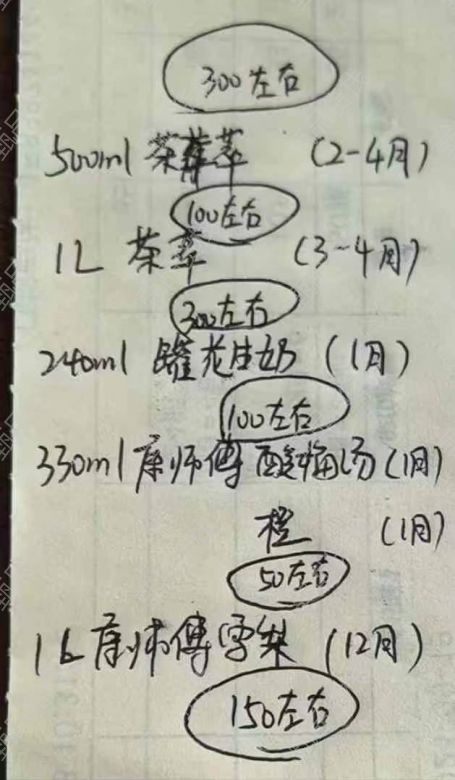 300左右
500ml 茶萃 (2-4月)
100左右
1L 茶萃 (3-4月)
300左右
240ml 罐花生奶 (1月)
100左右
330ml 康师傅 酸梅汤(1月)
橙 (1月)
50左右
1L 康师傅雪梨 (12月)
150左右